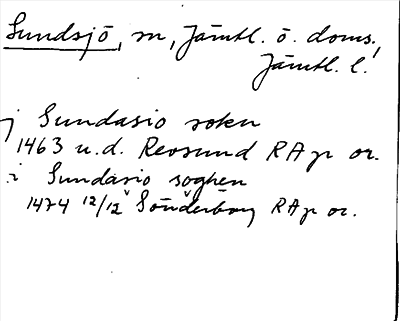 Sundsjö, sn, Jämtl. ö. doms.,
Jämtl. l.
j Sundasio sokn
1463 u.d. Revsund RAp or.
i Sundasio soghen
1474 12/12 Sönderborg RAp or.